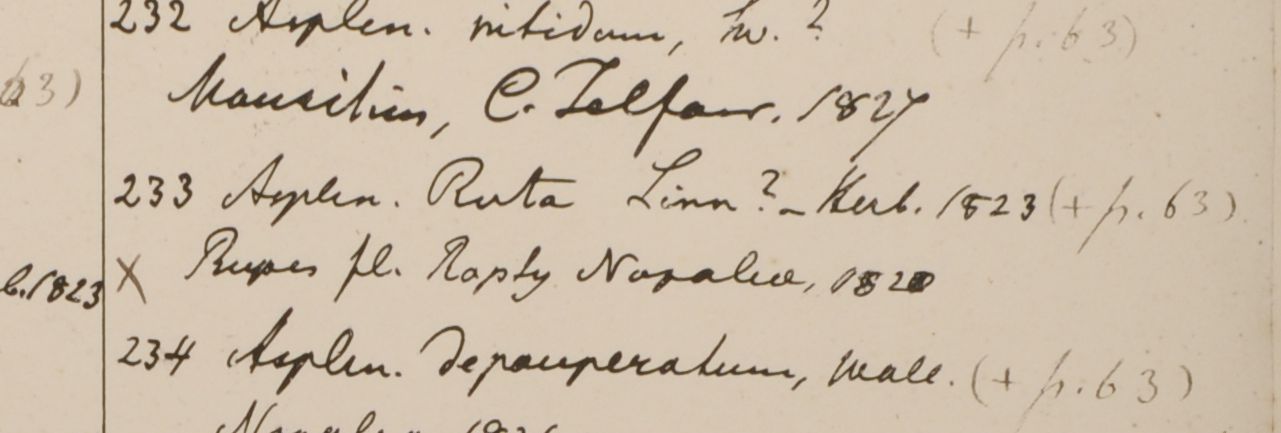 232 Asplen. nitidum, Sw.? (+ p. 63)
63)
Mauritius, C. Telfair. 1827
233 Asplen. Ruta Linn? - Herb. 1823 (+ p. 63)
b. 1823
X Rupes fl. Rapty Nopaliæ, 1820
234 Asplen. depauperatum, Wall. (+ p. 63)